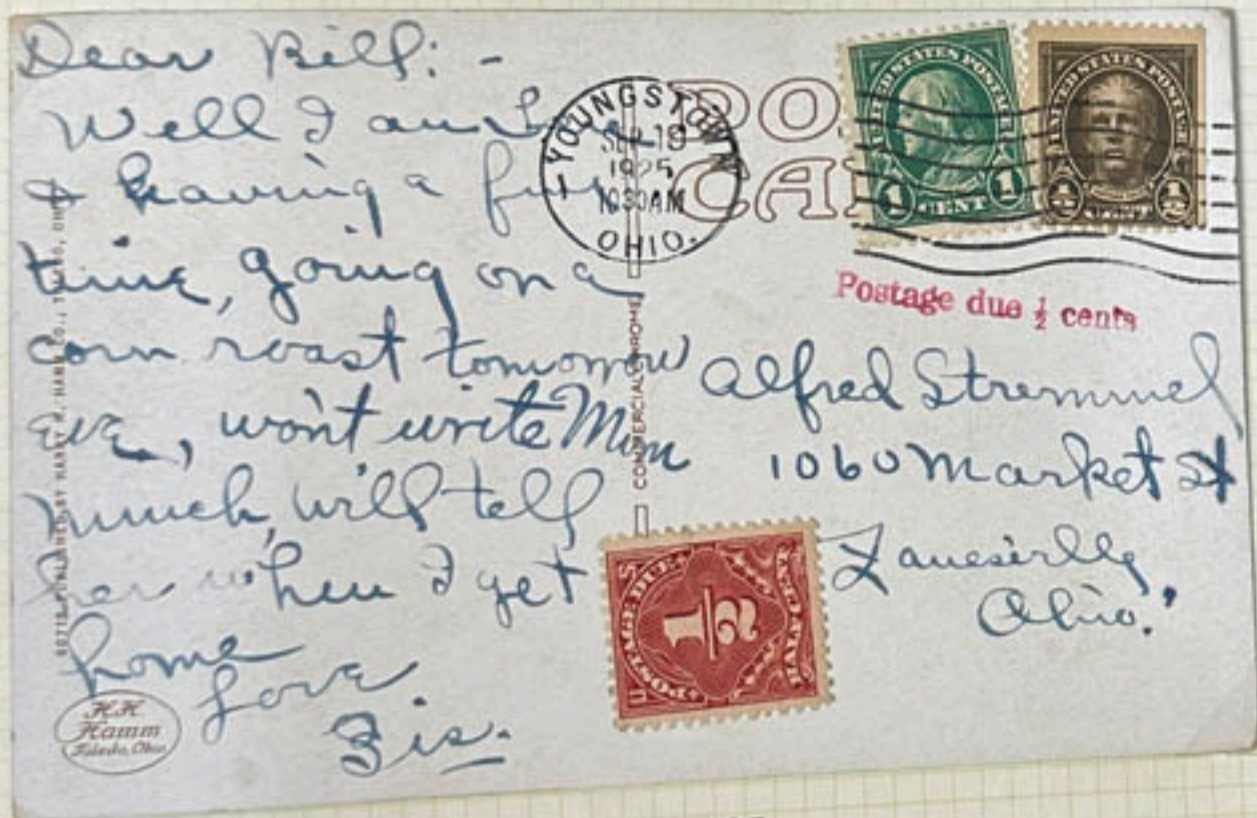 Dear Bill: -
Well I am here
& having a fine
time, going on a
corn roast tomorrow
eve, won't write Mim
much, will tell
her when I get
home
Love
Sis.
YOUNGSTOWN
SEP 19
1925
1030AM
OHIO.
PO
CA
UNITED STATES POSTAGE
1 CENT 1
UNITED STATES POSTAGE
½ CENT ½
Postage due ½ cents
Alfred Stremmel
1060 Market St
Zanesville
Ohio.
POSTAGE DUE
½
COMMERCIALCHROME
PUBLISHED BY HARRY H. HAMM CO., TOLEDO, OHIO
H.H.
Hamm
Toledo, Ohio